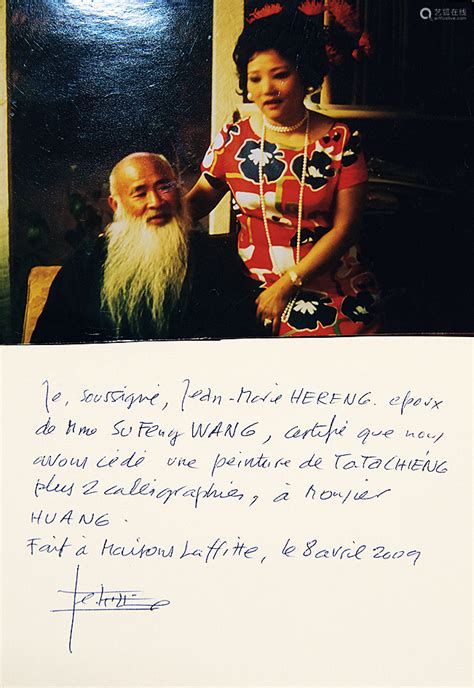 艺狐在线
artfoxlive.com
Je, soussigné, Jean-Marie HERENG. époux
de Mme SuFeng WANG, certifie que nous
avons cédé une peinture de TATACHIENG
plus 2 calligraphies, à Monsier
HUANG.
Fait à Maisons Laffitte, le 8 avril 2009